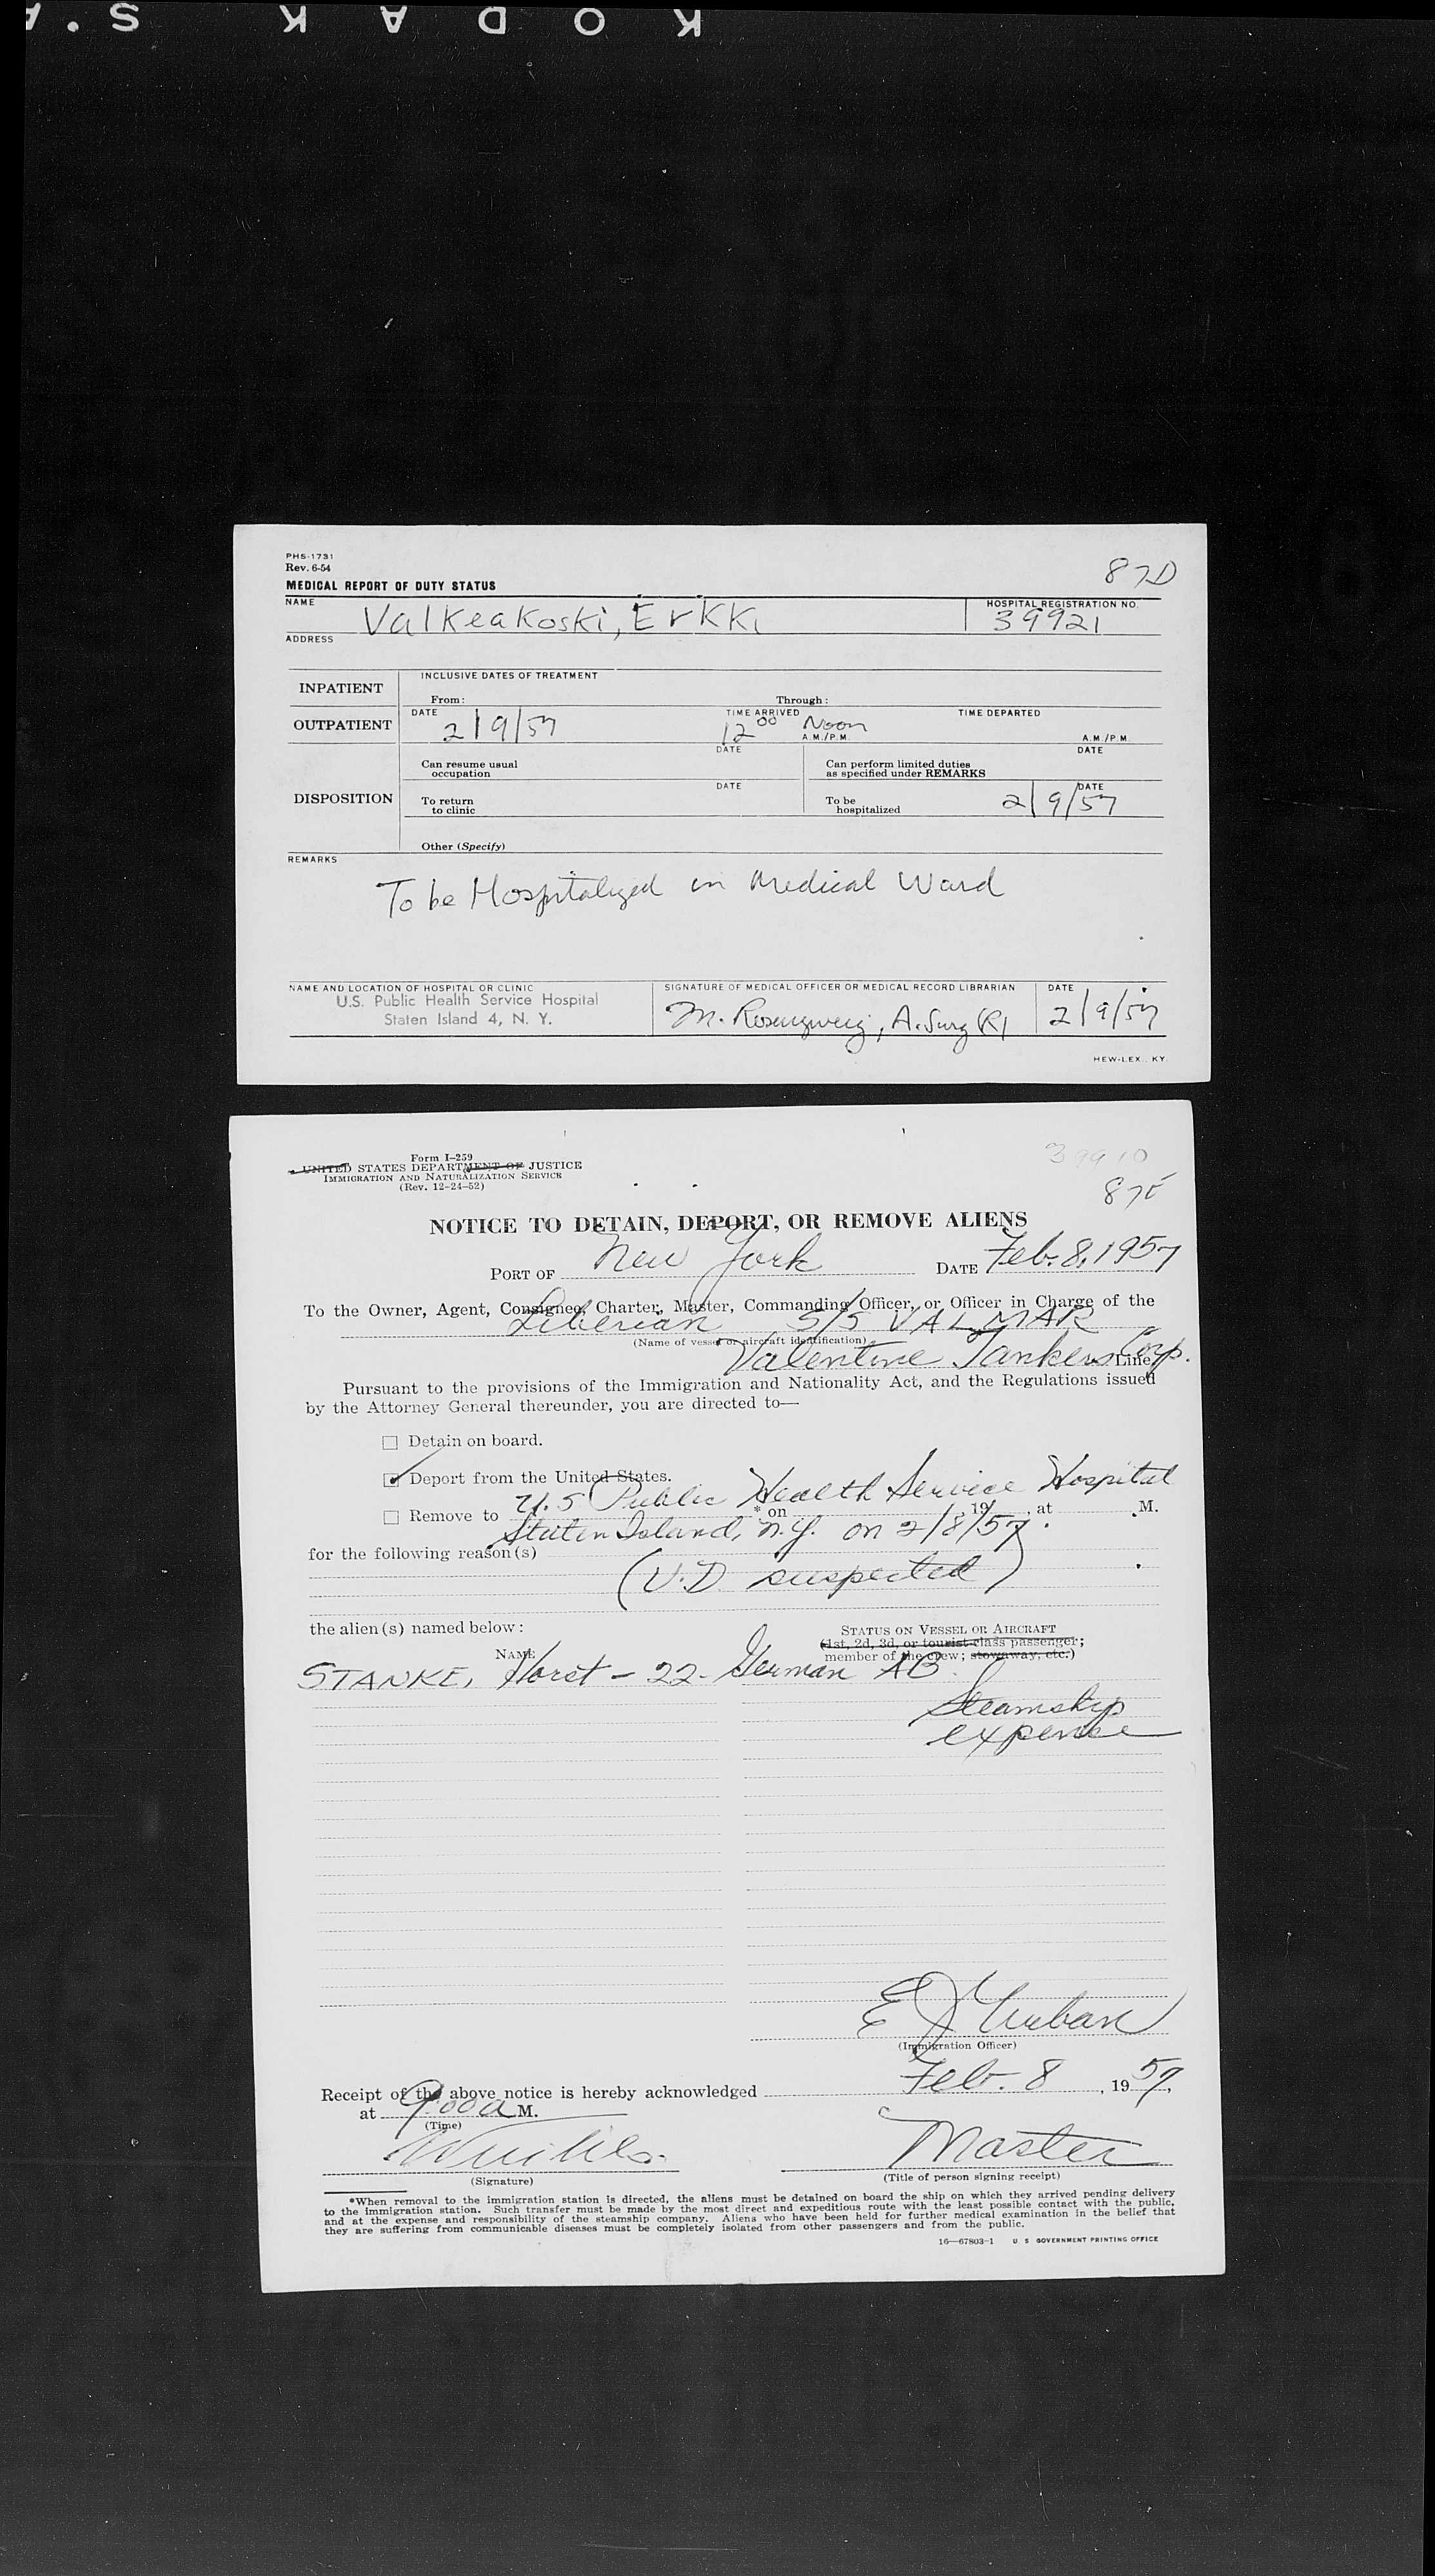 KODAK S.A
PHS-1731
Rev. 6-54
MEDICAL REPORT OF DUTY STATUS
87D
NAME
Valkeakoski, Erkki
HOSPITAL REGISTRATION NO.
39921
ADDRESS
INPATIENT
INCLUSIVE DATES OF TREATMENT
From:
Through:
OUTPATIENT
DATE
2/9/57
TIME ARRIVED
12 00 Noon
A.M./P.M.
TIME DEPARTED
A.M./P.M.
DISPOSITION
Can resume usual
occupation
DATE
Can perform limited duties
as specified under REMARKS
DATE
To return
to clinic
DATE
To be
hospitalized
DATE
2/9/57
Other (Specify)
REMARKS
To be Hospitalized in Medical Ward
NAME AND LOCATION OF HOSPITAL OR CLINIC
U.S. Public Health Service Hospital
Staten Island 4, N. Y.
SIGNATURE OF MEDICAL OFFICER OR MEDICAL RECORD LIBRARIAN
M. Rosenzweig, A. Surg (R)
DATE
2/9/57
HEW-LEX., KY.
Form I-259
UNITED STATES DEPARTMENT OF JUSTICE
IMMIGRATION AND NATURALIZATION SERVICE
(Rev. 12-24-52)
39910
87E
NOTICE TO DETAIN, DEPORT, OR REMOVE ALIENS
PORT OF New York DATE Feb. 8, 1957
To the Owner, Agent, Consignee, Charter, Master, Commanding Officer, or Officer in Charge of the
Liberian S/S VALMAR
(Name of vessel or aircraft identification)
Valentine Tankers Corp. Line,
Pursuant to the provisions of the Immigration and Nationality Act, and the Regulations issued
by the Attorney General thereunder, you are directed to—
☐ Detain on board.
☑ Deport from the United States.
☐ Remove to U.S Public Health Service Hospital * on , 19 , at M.
Staten Island, N.Y. on 2/8/57.
for the following reason(s)
(V.D. suspected)
the alien(s) named below:
STATUS ON VESSEL OR AIRCRAFT
(1st, 2d, 3d, or tourist class passenger;
member of the crew; stowaway, etc.)
NAME
STANKE, Horst - 22 - German AB.
Steamship
expense
E J Urban
(Immigration Officer)
Receipt of the above notice is hereby acknowledged Feb. 8, 1957,
at 9:00 a M.
(Time)
Master
(Signature)
(Title of person signing receipt)
*When removal to the immigration station is directed, the aliens must be detained on board the ship on which they arrived pending delivery
to the immigration station. Such transfer must be made by the most direct and expeditious route with the least possible contact with the public,
and at the expense and responsibility of the steamship company. Aliens who have been held for further medical examination in the belief that
they are suffering from communicable diseases must be completely isolated from other passengers and from the public.
16—67803-1 U. S. GOVERNMENT PRINTING OFFICE